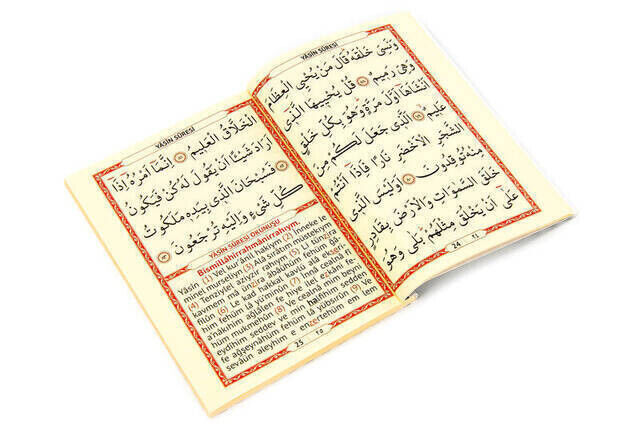 YÂSİN SÛRESİ
وَنَسِىَ خَلْقَهُ قَالَ مَنْ يُحْيِى الْعِظَامَ
وَهِىَ رَمِيمٌ ﴿٧٨﴾ قُلْ يُحْيِيهَا الَّذِى
اَنْشَاَهَا اَوَّلَ مَرَّةٍ وَهُوَ بِكُلِّ خَلْقٍ
عَلِيمٌ ﴿٧٩﴾ اَلَّذِى جَعَلَ لَكُمْ مِنَ
الشَّجَرِ الْاَخْضَرِ نَارًا فَاِذَا اَنْتُمْ
مِنْهُ تُوقِدُونَ ﴿٨٠﴾ اَوَلَيْسَ الَّذِى
خَلَقَ السَّمٰوَاتِ وَالْاَرْضَ بِقَادِرٍ
عَلٰى اَنْ يَخْلُقَ مِثْلَهُمْ بَلٰى وَهُوَ
24 ٢٤
YÂSİN SÛRESİ
الْخَلَّاقُ الْعَلِيمُ ﴿٨١﴾ اِنَّمَا اَمْرُهُ اِذَا
اَرَادَ شَيْئًا اَنْ يَقُولَ لَهُ كُنْ فَيَكُونُ
﴿٨٢﴾ فَسُبْحَانَ الَّذِى بِيَدِهِ مَلَكُوتُ
كُلِّ شَىْءٍ وَاِلَيْهِ تُرْجَعُونَ ﴿٨٣﴾
YÂSİN SÛRESİ OKUNUŞU
Bismillâhirrahmânirrahıym.
Yâsîn (1) Vel kur'ânil hakiym (2) İnneke le
minel murseliyn (3) Alâ sırâtım müstekıym
(4) Tenziylel aziyzir rahıym (5) Li tünzira
kavmem mâ ünzira âbâühüm fehüm ğâ-
filûn (6) Le kad hakkal kavlü alâ ekseri-
him fehüm lâ yü'minûn (7) İnnâ cealnâ fî
a'nâkıhim ağlâlen fe hiye ilel ezkâni fe-
hüm mukmehûn (8) Ve cealnâ mim beyni
eydîhim seddev ve min halfihim sedden
fe ağşeynâhüm fehüm lâ yübsırûn (9) Ve
sevâün aleyhim e enzertehüm em lem
25 ٢٥